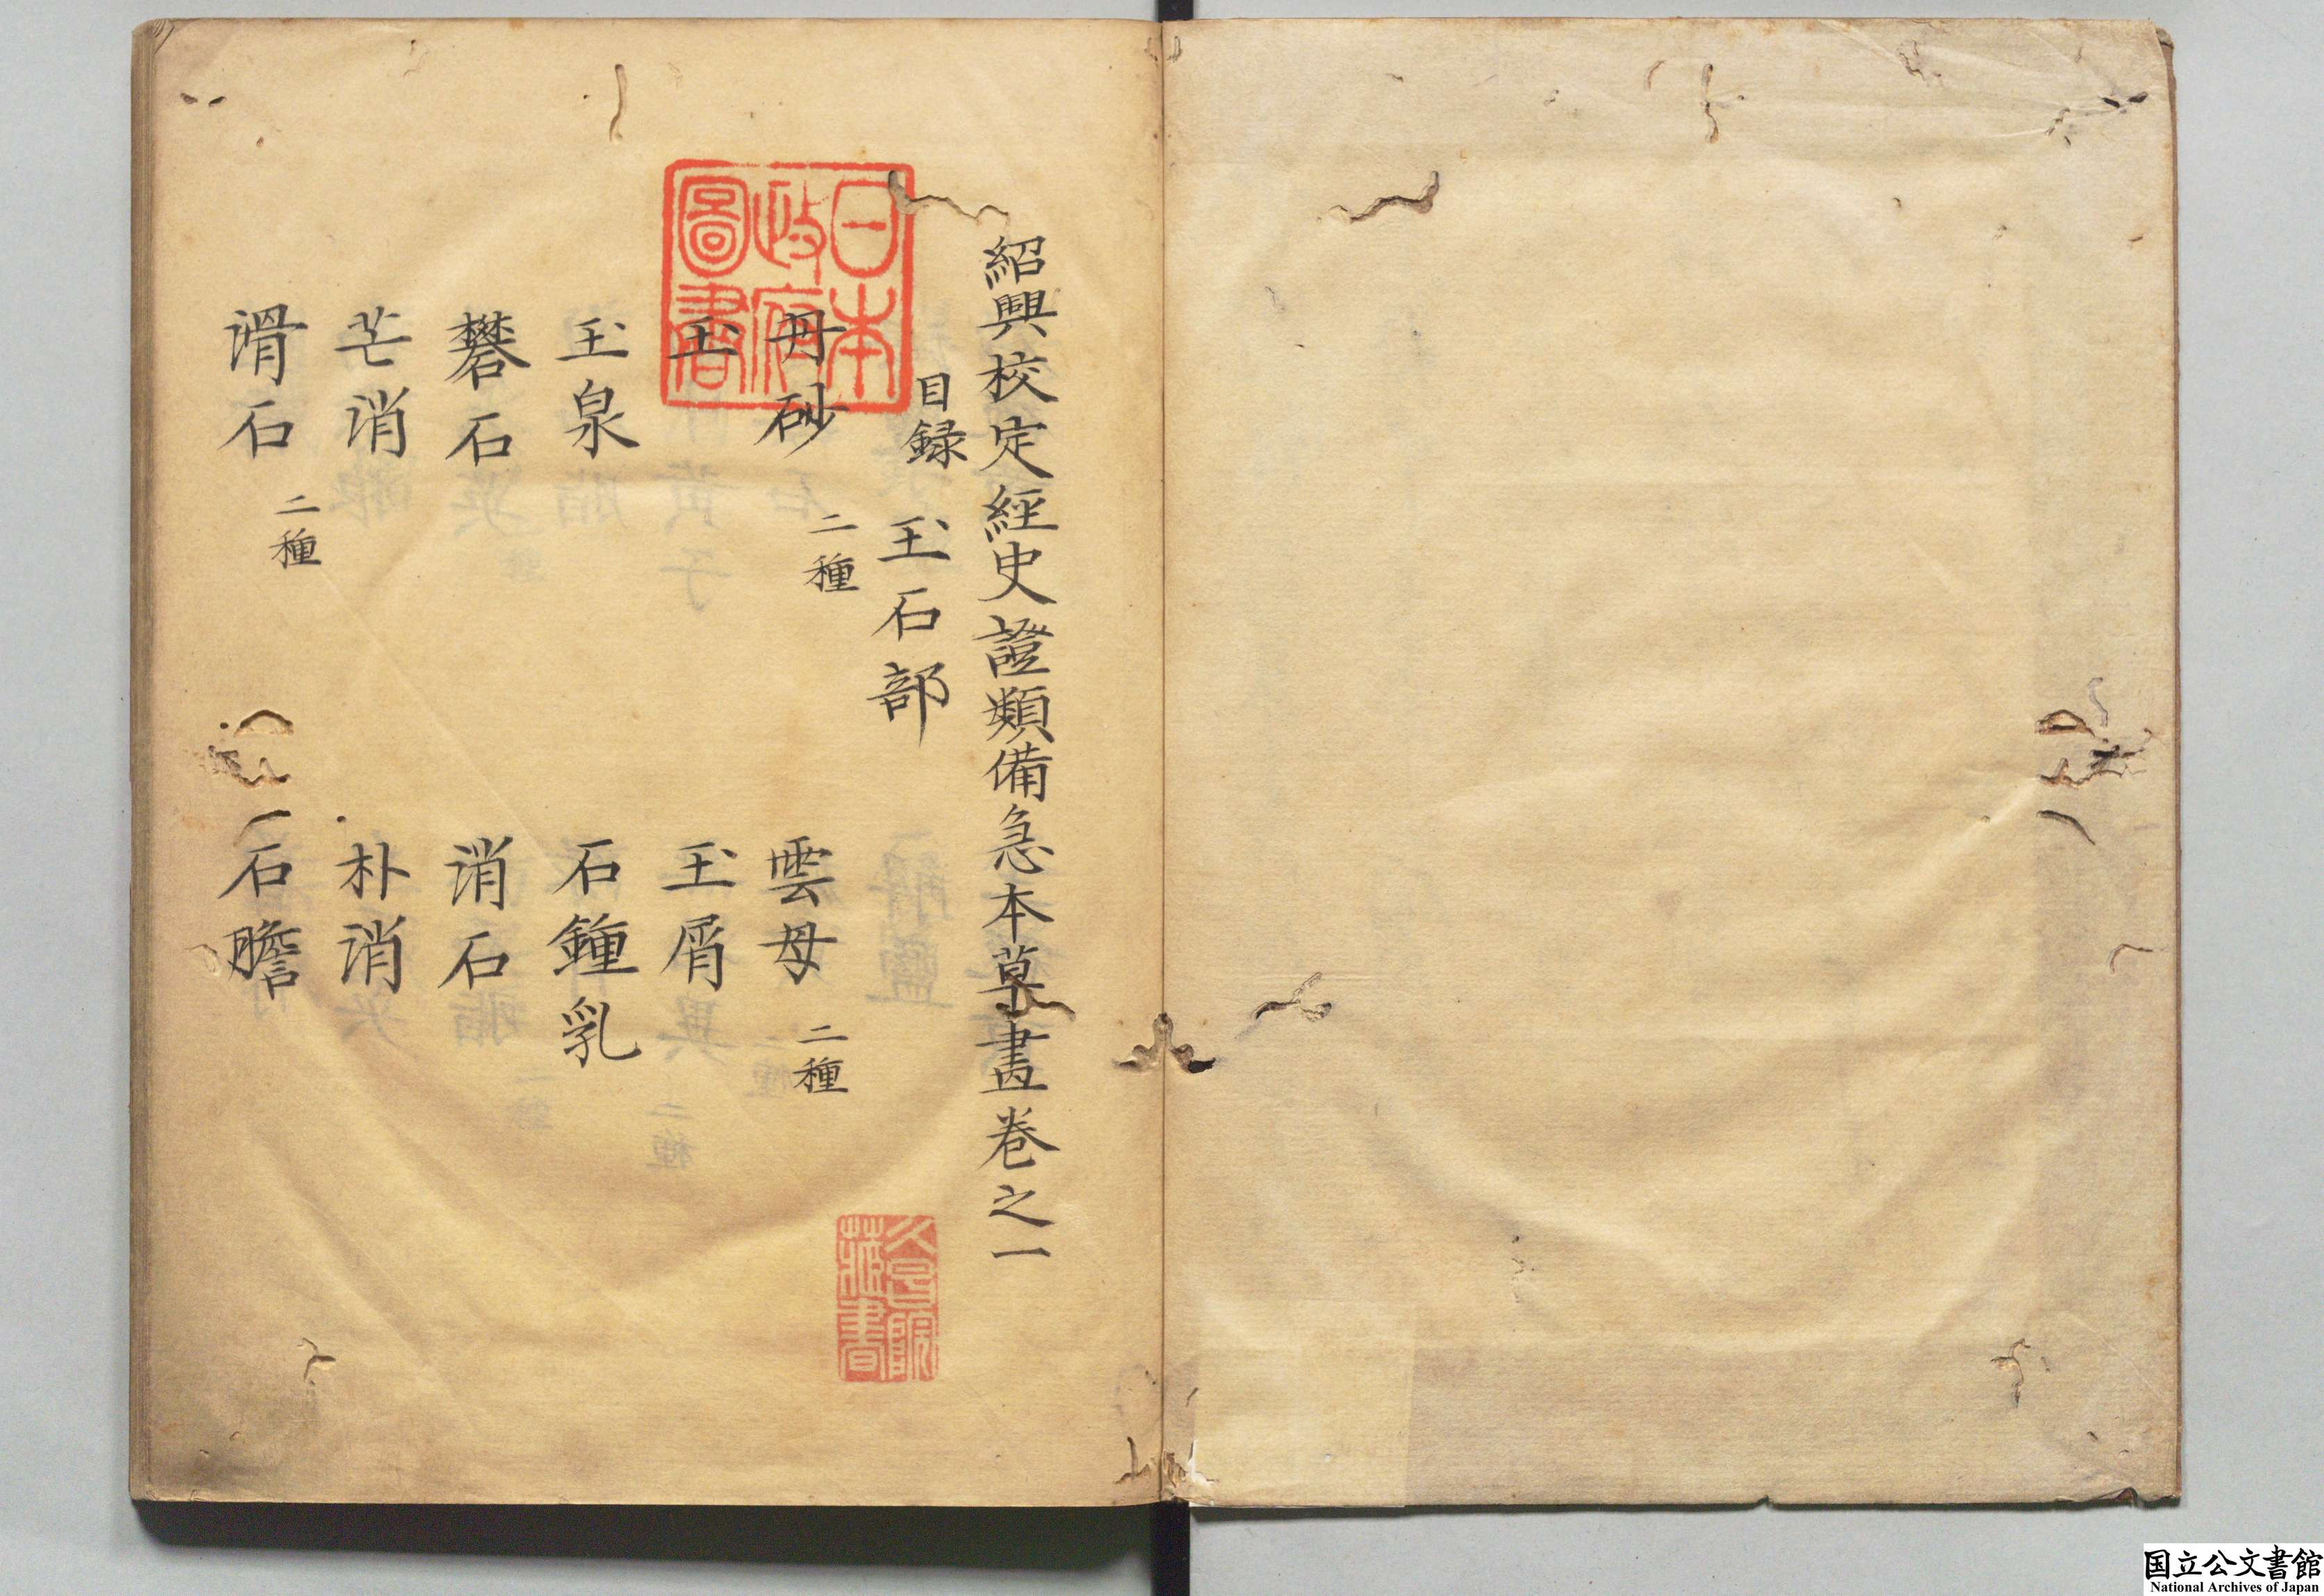 紹興校定經史證類備急本草畫卷之一
目録
玉石部
丹砂 二種
雲母 二種
玉
玉屑
玉泉
石鍾乳
礬石
消石
芒消
朴消
滑石 二種
石膽
日本
政府
圖書
藏書
国立公文書館
National Archives of Japan